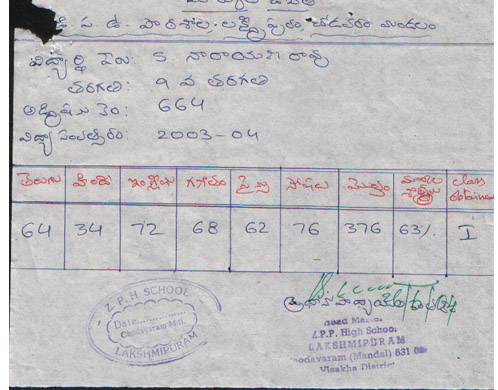 జి. ప. ఉ. పాఠశాల లక్ష్మీపురం, చోడవరం మండలం
విద్యార్థి పేరు: S నారాయణ రావు
తరగతి: 9 వ తరగతి
అడ్మిషను నెం: 664
విద్యా సంవత్సరం: 2003-04
తెలుగు హిందీ ఇంగ్లీషు గణితం సైన్సు సోషలు మొత్తం class obtained
64 34 72 68 62 76 376 63% I
Z.P.H SCHOOL
Date
Chodavaram Mdl.
LAKSHMIPURAM
ప్రధానోపాధ్యాయుని
Head Master
Z.P.P. High School
LAKSHMIPURAM
hodavaram (Mandal) 531 0
Visakha District